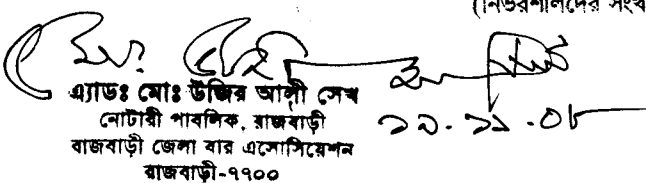 (নির্ভরশীলদের সংখ
এ্যাডঃ মোঃ উজির আলী সেখ
নোটারী পাবলিক, রাজবাড়ী
১৯-১১-০৮
রাজবাড়ী জেলা বার এসোসিয়েশন
রাজবাড়ী-৭৭০০